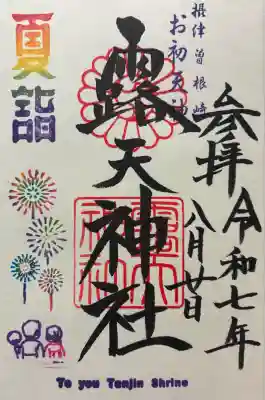 参拝
令和七年
八月廿日
摂津 曽根崎
お初天神
露天神社
夏詣
To you Tenjin Shrine